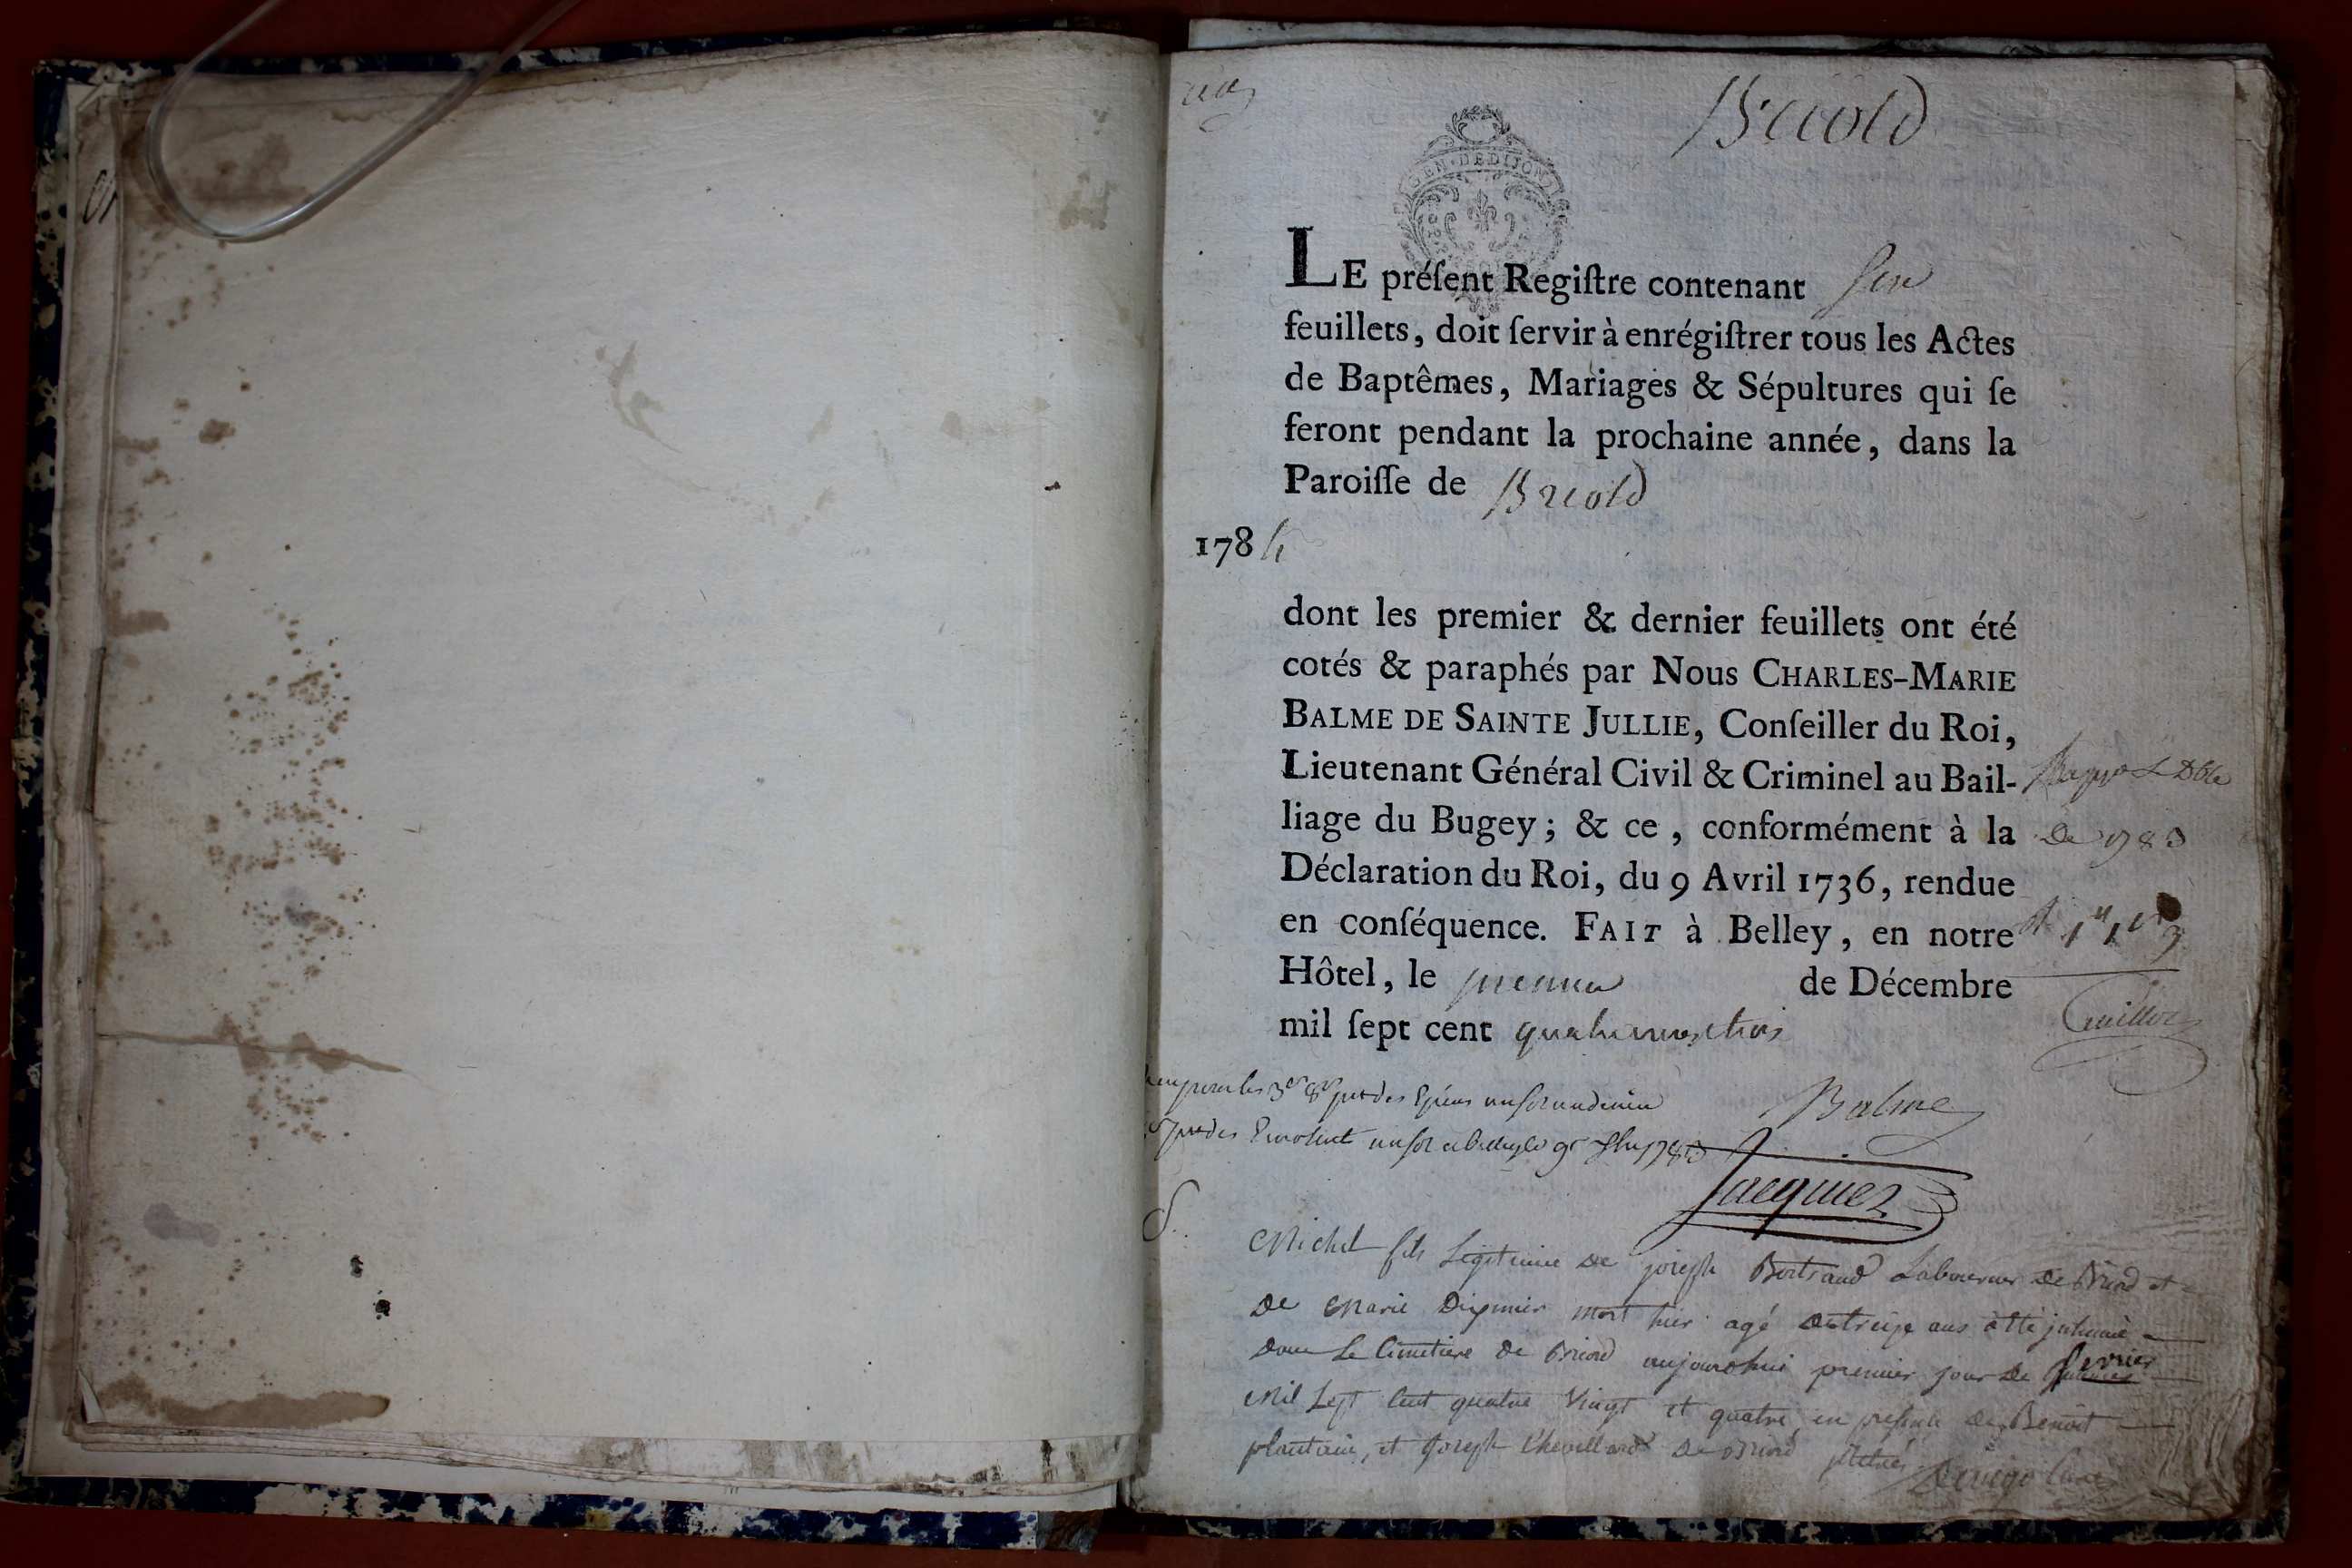 Briord
GEN·DE DIJON
LE préſent Regiſtre contenant
feuillets, doit ſervir à enrégiſtrer tous les Actes
de Baptêmes, Mariages & Sépultures qui ſe
feront pendant la prochaine année, dans la
Paroiſſe de Briord
1784
dont les premier & dernier feuillets ont été
cotés & paraphés par Nous CHARLES-MARIE
BALME DE SAINTE JULLIE, Conſeiller du Roi,
Lieutenant Général Civil & Criminel au Bail-
liage du Bugey; & ce, conformément à la
Déclaration du Roi, du 9 Avril 1736, rendue
en conſéquence. FAIT à Belley, en notre
Hôtel, le premier de Décembre
mil ſept cent quatrevingtrois
De 1783
Balme
Jacquier
S.
Michel fils Legitime de joseph Bertrand Laboureur de Briord et
de Marie mort hier agé de treize ans a été inhumé
dans Le Cimetiere de Briord aujourdhui premier jour de fevrier
Mil Sept Cent quatre Vingt et quatre en presence de Benoit
plantain, et Joseph Chevillard de Briord
curé